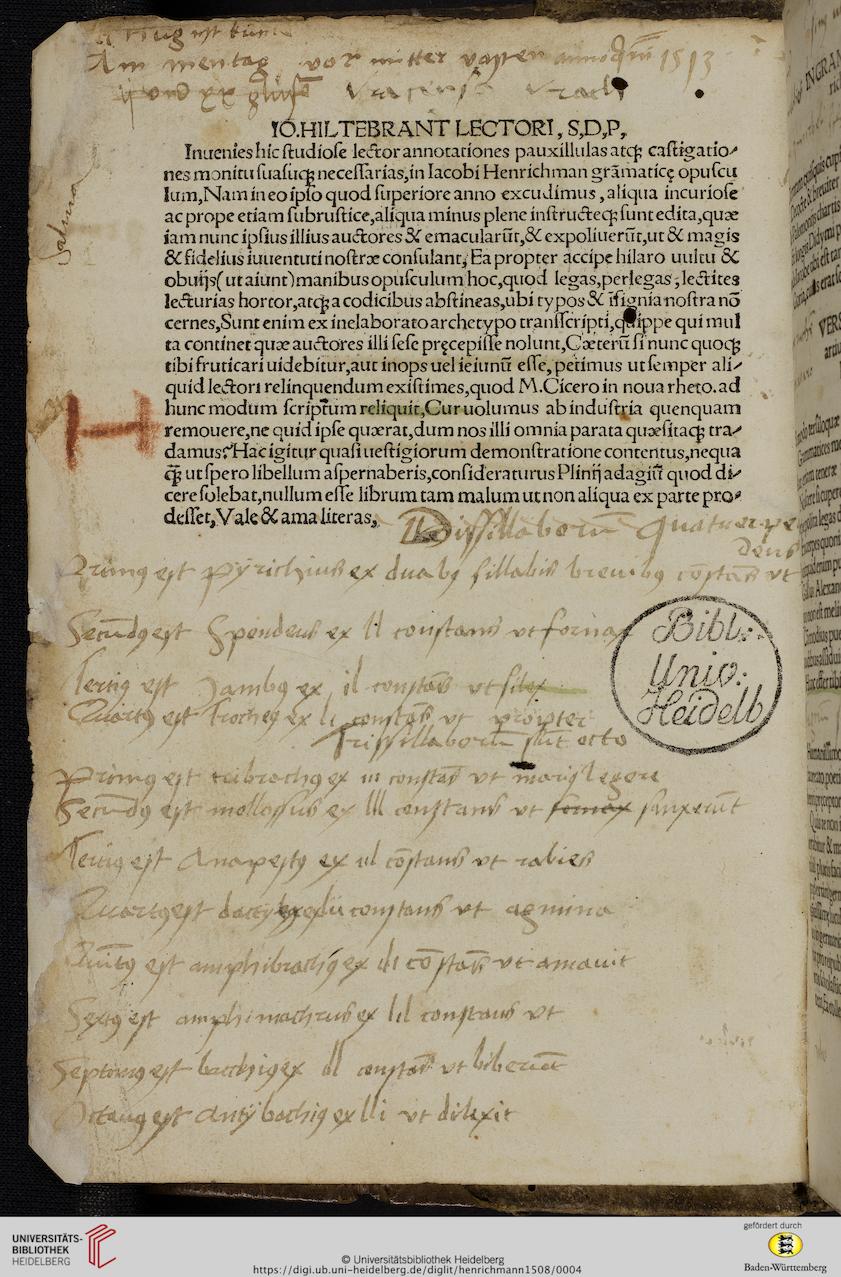 Am mentag vor mitter vasten anno 1513
IO.HILTEBRANT LECTORI, S,D,P,
Inuenies hic studiose lector annotationes pauxillulas atq; castigatio⸗
nes monitu suasuq; necessarias,in Iacobi Henrichman grāmaticę opuscu
lum,Nam in eo ipso quod superiore anno excudimus, aliqua incuriose
ac prope etiam subrustice,aliqua minus plene instructeq; sunt edita,quæ
iam nunc ipsius illius auctores & emacularūt,& expoliuerūt,ut & magis
& fidelius iuuentuti nostræ consulant, Ea propter accipe hilaro uultu &
obuijs(ut aiunt)manibus opusculum hoc,quod legas,perlegas, lectites
lecturias hortor,atq; a codicibus abstineas,ubi typos & īsignia nostra nō
cernes,Sunt enim ex inelaborato archetypo transscripti,quippe qui mul
ta continet quæ auctores illi sese pręcepisse nolunt,Cæterū si nunc quoq;
tibi fruticari uidebitur,aut inops uel ieiunū esse, petimus ut semper ali⸗
quid lectori relinquendum existimes,quod M.Cicero in noua rheto.ad
hunc modum scriptum reliquit,Cur uolumus ab industria quenquam
remouere,ne quid ipse quærat,dum nos illi omnia parata quæsitaq; tra⸗
damus? Hac igitur quasi uestigiorum demonstratione contentus,nequa
q̄; ut spero libellum aspernaberis,consideraturus Plinij adagiū quod di⸗
cere solebat,nullum esse librum tam malum ut non aliqua ex parte pro⸗
desset, Vale & ama literas,
Dissillaborum quatuor pe
dens
Primus est pyrichius ex duabus sillabis brevibus cōstans ut
Secūdus est Spondeus ex ll constans ut fornax
Tertius est Jambus ex il constās ut silex
Quartus est Trocheus ex li constās ut propter
Trissillaborum sūt octo
Primus est tribrachus ex iii constās ut legere
Secūdus est molossus ex lll constans ut fornax sanxerūt
Tertius est Anapestus ex iil cōstans ut rabies
Quartus est dactylus ex lii constans ut agmina
Quītus est amphibrachus ex ili cōstās ut amauit
Sextus est amphimachrus ex lil constans ut
Septimus est bacchius ex ill constās ut biberūt
Octauus est Antibachius ex lli ut dilexit
Bibl:
Univ.:
Heidelb
UNIVERSITÄTS-
BIBLIOTHEK
HEIDELBERG
© Universitätsbibliothek Heidelberg
https://digi.ub.uni-heidelberg.de/diglit/henrichmann1508/0004
gefördert durch
Baden-Württemberg